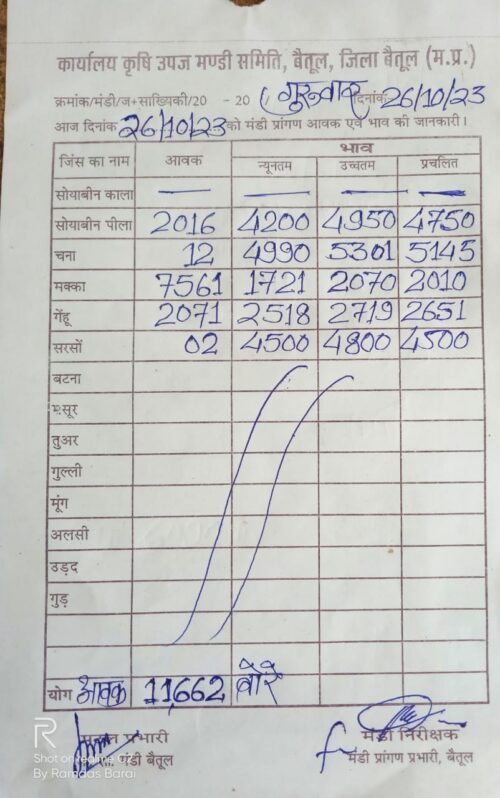 कार्यालय कृषि उपज मण्डी समिति, बैतूल, जिला बैतूल (म.प्र.)
क्रमांक/मंडी/ज+साख्यिकी/20 - 20 ( गुरूवार दिनांक 26/10/23
आज दिनांक 26/10/23 को मंडी प्रांगण आवक एवं भाव की जानकारी।
जिंस का नाम आवक भाव
न्यूनतम उच्चतम प्रचलित
सोयाबीन काला — — — —
सोयाबीन पीला 2016 4200 4950 4750
चना 12 4990 5301 5145
मक्का 7561 1721 2070 2010
गेंहू 2071 2518 2719 2651
सरसों 02 4500 4800 4500
बटना
मसूर
तुअर
गुल्ली
मूंग
अलसी
उड़द
गुड़
योग आवक 11,662 बोरे
प्रभारी मंडी निरीक्षक
मंडी बैतूल मंडी प्रांगण प्रभारी, बैतूल
R
Shot on realme C
By Ramdas Barai